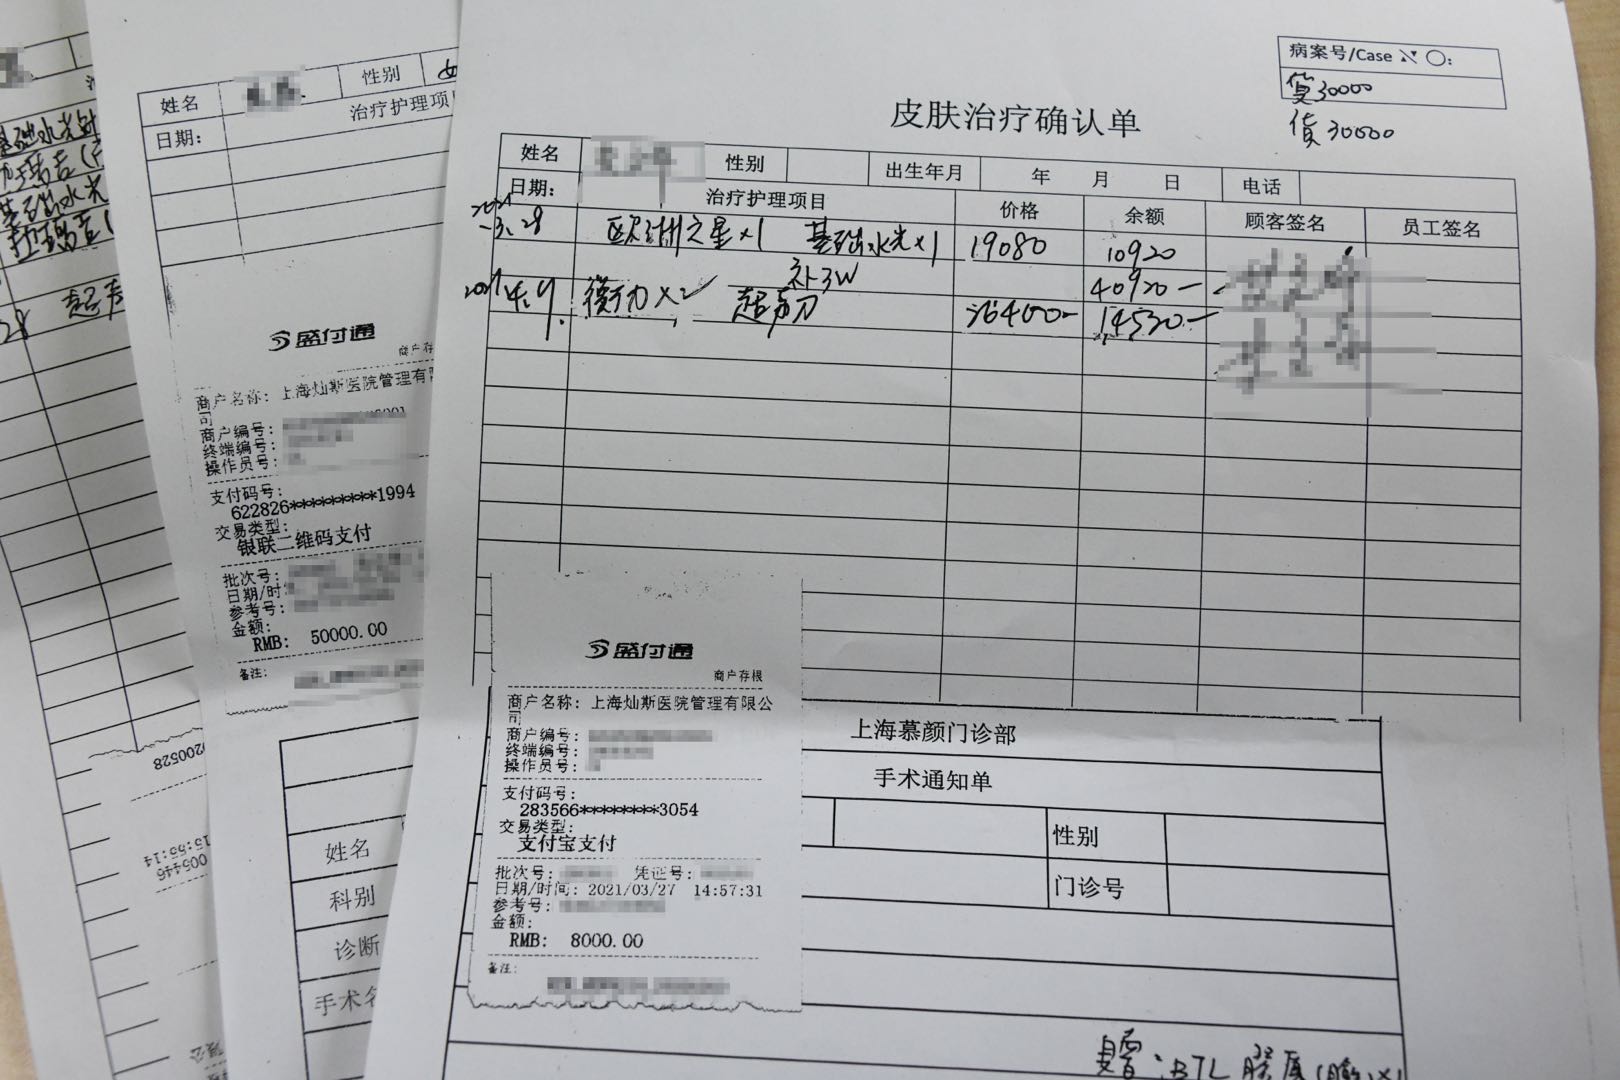 病案号/Case
30000
贷30000
皮肤治疗确认单
姓名 性别 出生年月 年 月 日 电话
日期: 治疗护理项目 价格 余额 顾客签名 员工签名
2021
3.28 欧洲之星×1 基础水光×1 19080 10920
补3W 40920-
2021 4.9. 衡力×2 超声刀 14530-
盛付通
商户存根
商户名称: 上海灿斯医院管理有限公
司
商户编号:
终端编号:
操作员号:
支付码号:
283566*********3054
交易类型:
支付宝支付
批次号: 凭证号:
日期/时间: 2021/03/27 14:57:31
参考号:
金额:
RMB: 8000.00
备注:
上海慕颜门诊部
手术通知单
性别
门诊号
姓名 性别 女
日期: 治疗护理项
盛付通
商户存
商户名称: 上海灿斯医院管理有
司
商户编号:
终端编号:
操作员号:
支付码号:
622826**********1994
交易类型:
银联二维码支付
批次号:
日期/时
参考号:
金额:
RMB: 50000.00
备注:
姓名
科别
诊断
手术名
基础水光针
基础水光
超声
28
0200528
005446
15:55:14